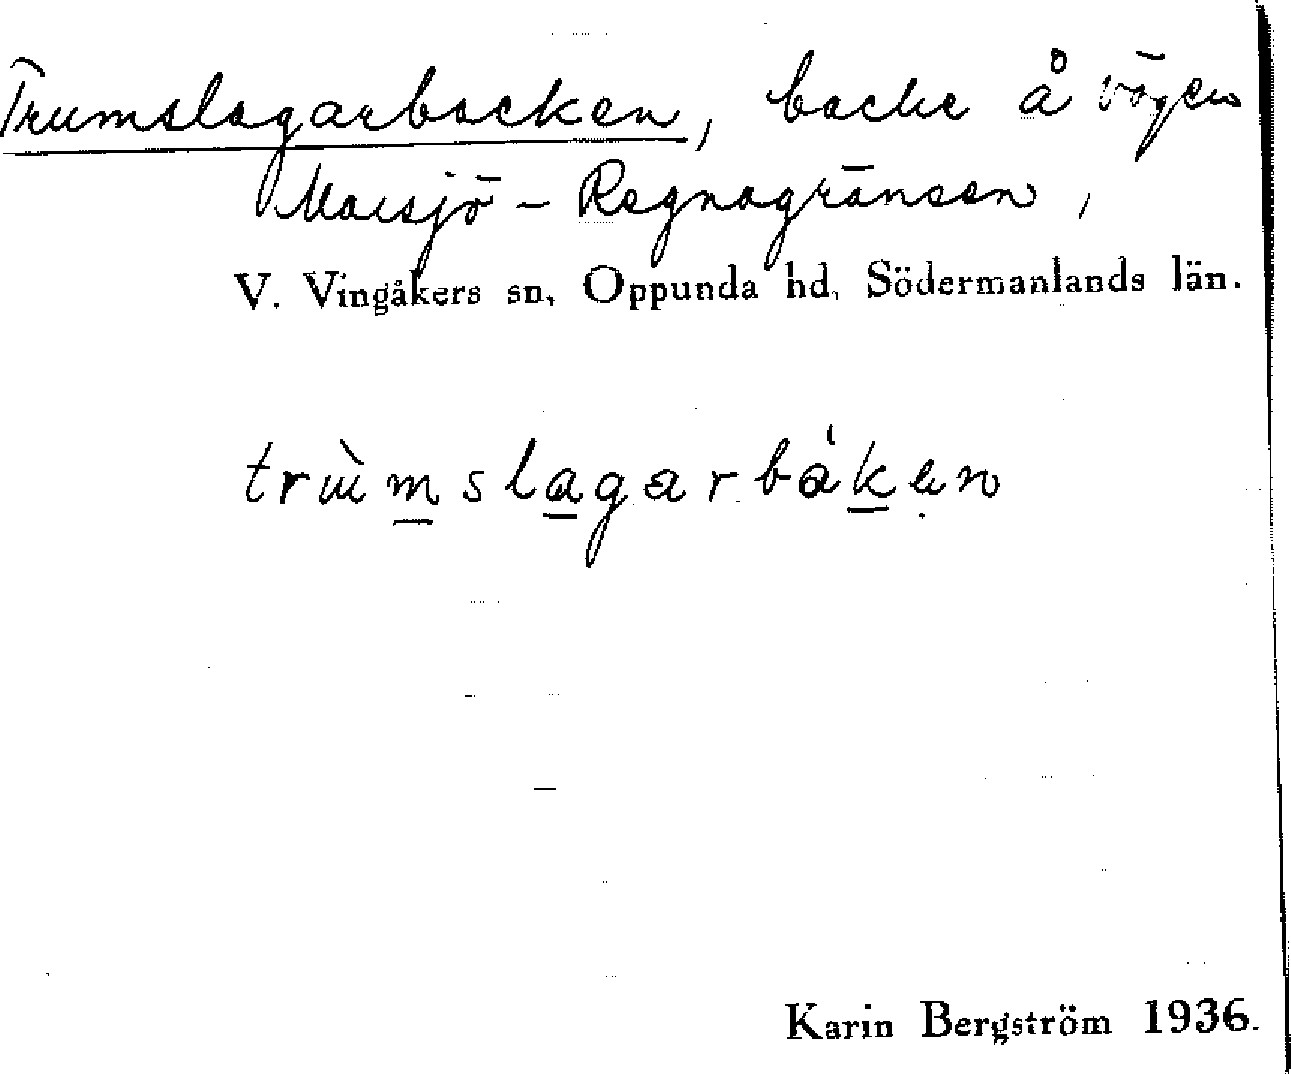 Trumslagarbacken, backe å vägen
Marsjö - Regnagränsen,
V. Vingåkers sn, Oppunda hd, Södermanlands län.
trùmslagarbáken
Karin Bergström 1936.